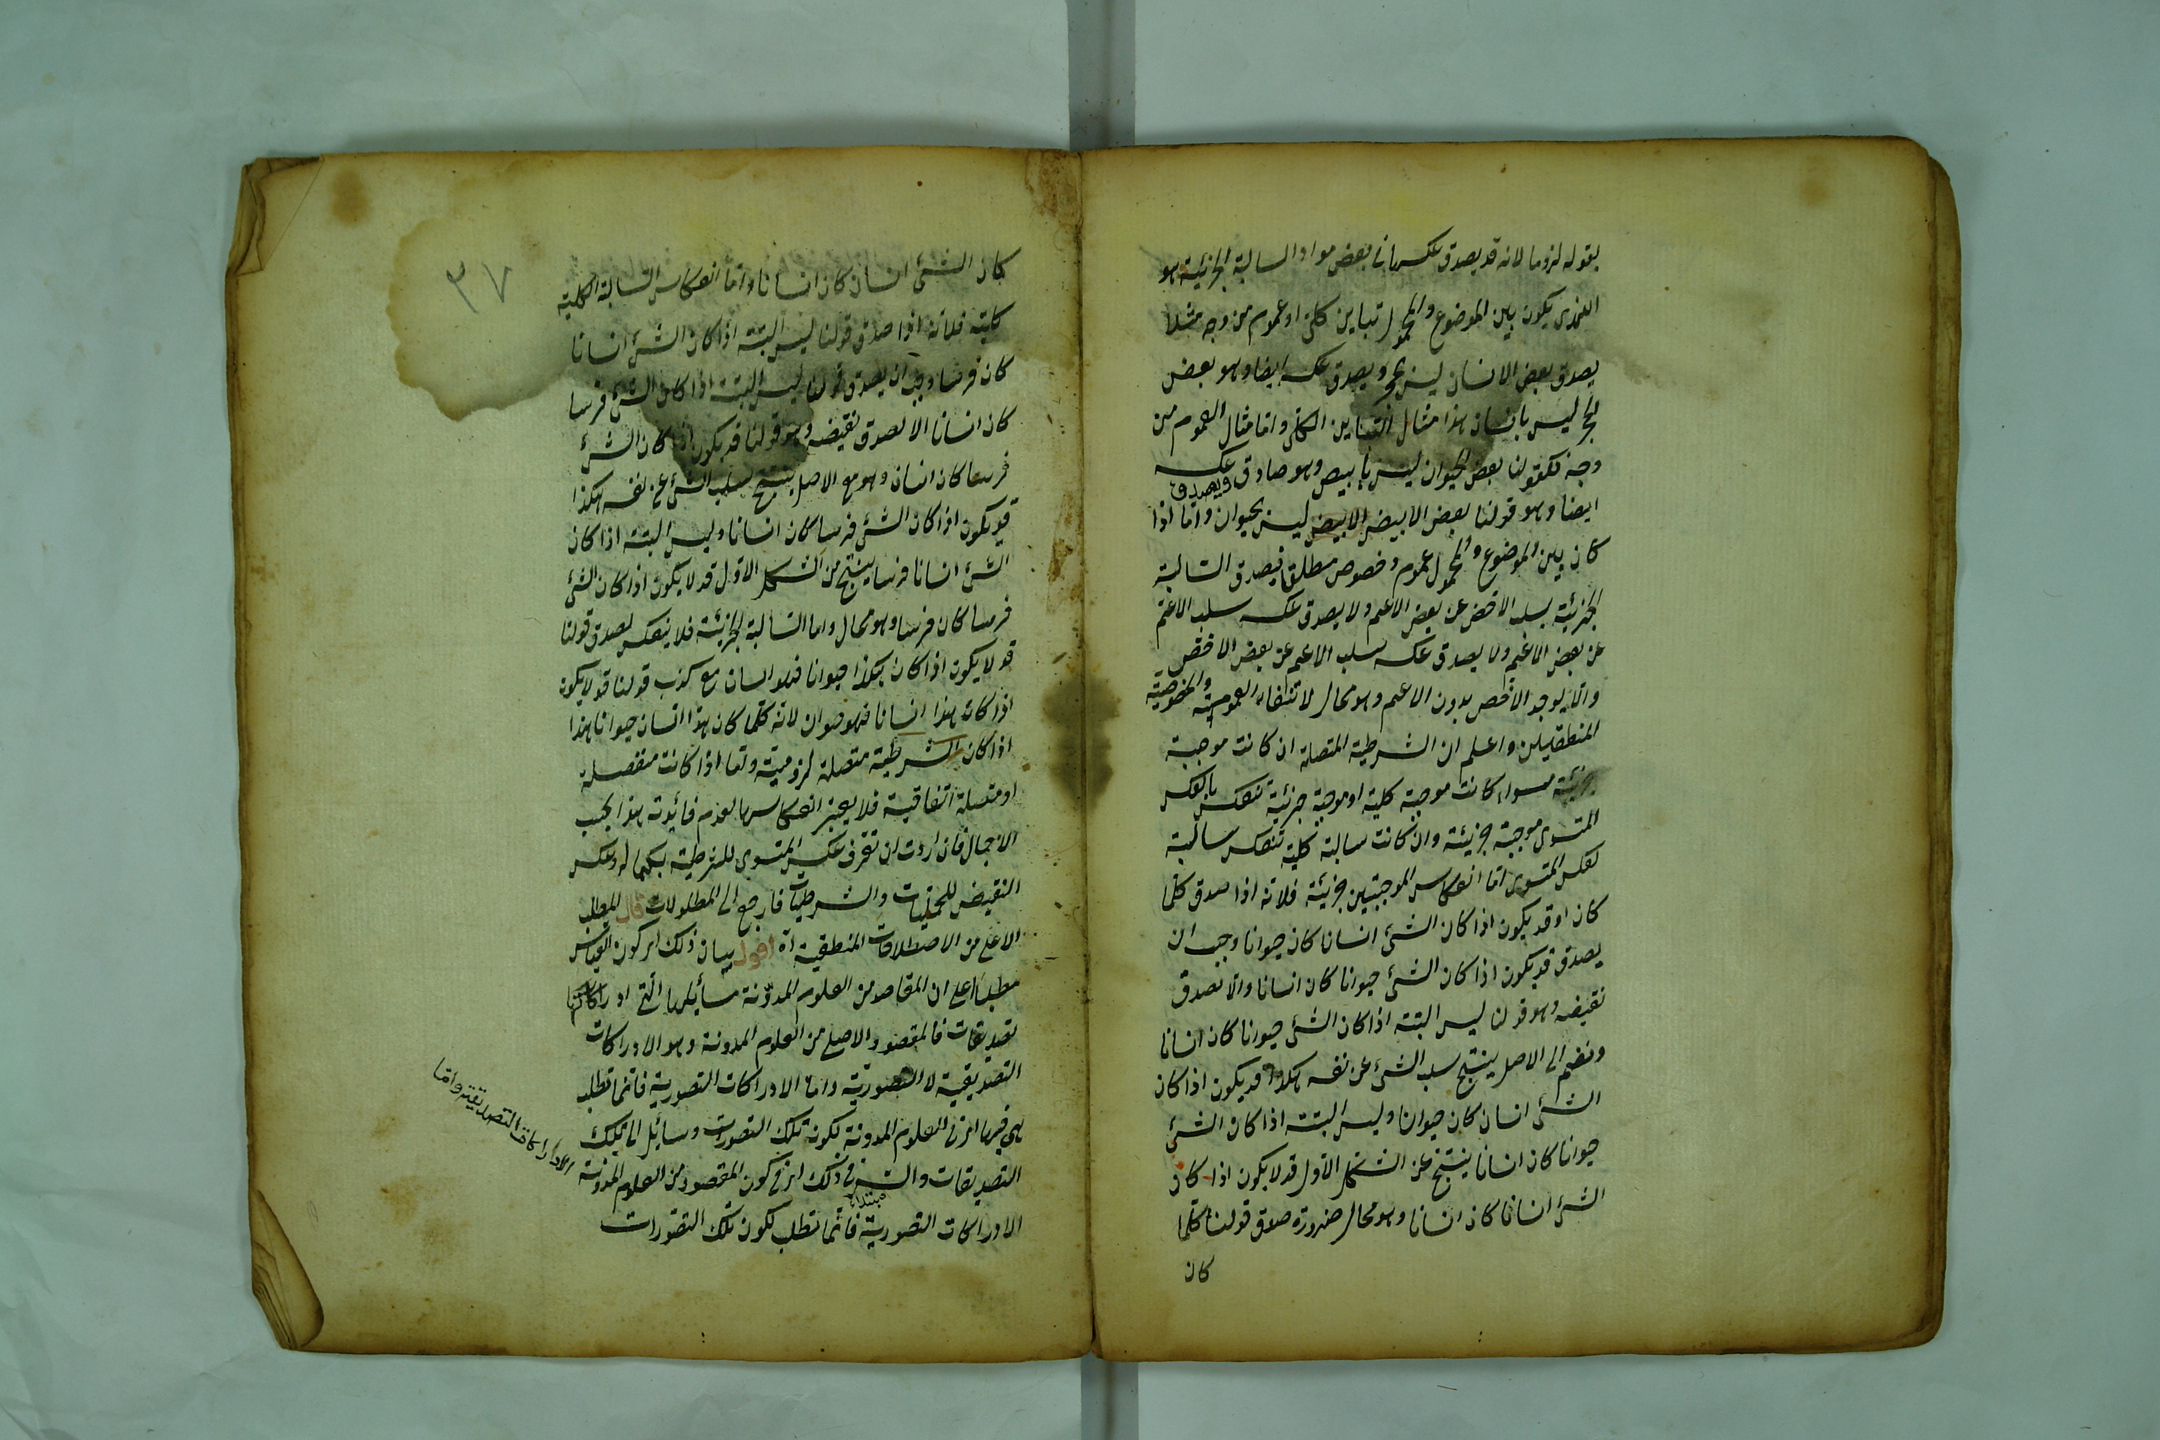 بقوله لزوما لانه قد يصدق عكسها فى بعض مواد السالبة الجزئية هو
الذى يكون بين الموضوع والمحمول تباين كلى او عموم من وجه مثلا
يصدق بعض الانسان ليس بحجر ويصدق عكسه ايضا وهو بعض
الحجر ليس بانسان هذا مثال التباين الكلى واما مثال العموم من
وجه فكقولنا بعض الحيوان ليس بابيض وهو صادق ويصدق عكسه
ايضا وهو قولنا بعض الابيض الابيض ليس بحيوان واما اذا
كان بين الموضوع والمحمول عموم وخصوص مطلق فيصدق السالبة
الجزئية بسلب الاخص عن بعض الاعم ولا يصدق عكسه سلب الاعم
عن بعض الاعم ولا يصدق عكسه سلب الاعم عن بعض الاخص
والا لوجد الاخص بدون الاعم وهو محال لانتفاء العمومية والخصوصية
المنطقيين واعلم ان الشرطية المتصلة ان كانت موجبة
جزئية سواء كانت موجبة كلية او موجبة جزئية تنعكس بالعكس
المستوى موجبة جزئية وان كانت سالبة كلية تنعكس سالبة
لعكس المستوى اما انعكاس الموجبتين جزئية فلانه اذا صدق كلما
كان او قد يكون اذا كان الشئ انسانا كان حيوانا وجب ان
يصدق قد يكون اذا كان الشئ حيوانا كان انسانا والا لصدق
نقيضه وهو قولنا ليس البتة اذا كان الشئ حيوانا كان انسانا
ونضم الى الاصل ينتج سلب الشئ عن نفسه هكذا قد يكون اذا كان
الشئ انسان كان حيوانا وليس البتة اذا كان الشئ
حيوانا كان انسانا ينتج من الشكل الاول قد لا يكون اذا كان
الشئ انسانا كان انسانا وهو محال ضرورة صدق قولنا كلما
كان
٣٧
كان الشئ انسان كان انسانا واما انعكاس السالبة الكلية
كلية فلانه اذا صدق قولنا ليس البتة اذا كان الشئ انسانا
كان فرسا وجب ان يصدق قولنا ليس البتة اذا كان الشئ فرسا
كان انسانا الا لصدق نقيضه وهو قولنا قد يكون اذا كان الشئ
فرسا كان انسان وهو مع الاصل ينتج سلب الشئ عن نفسه هكذا
قد يكون اذا كان الشئ فرسا كان انسانا وليس البتة اذا كان
الشئ انسانا فرسا ينتج من الشكل الاول قد لا يكون اذا كان الشئ
فرسا كان فرسا وهو محال واما السالبة الجزئية فلا ينعكس لصدق قولنا
قد لا يكون اذا كان هكذا حيوانا فهو انسان مع كذب قولنا قد لا يكون
اذا كان هذا انسانا فهو حيوان لانه كلما كان هذا انسان حيوانا هذا
اذا كان الشرطية متصلة لزومية واما اذا كانت منفصلة
او متصلة اتفاقية فلا يعتبر انعكاسها لعدم فائدته هذا بحسب
الاجمال فان اردت ان تعرف عكس المستوى للشرطية بكماله وعكس
النقيض للحمليات والشرطيات فارجع الى المطولات قال المطلب
الاعلى من الاصطلاحات المنطقية اه اقول بيان ذلك ان كون القياس
مطلبا اعلى ان المقاصد من العلوم المدونة مسائلها التى ادراكاتها
تصديقات فالمقصود الاصلى من العلوم المدونة وهو الادراكات
التصديقية لا التصورية واما الادراكات التصورية فانما تطلب
هى فيها اى فى العلوم المدونة لكونه تلك التصورات وسائل الى تلك
التصديقات والسر فى ذلك اى فى كون المقصود من العلوم المدونة
الادراكات التصورية فانما تطلب لكون تلك التصورات
مبتداء
الادراكات التصديقية واما